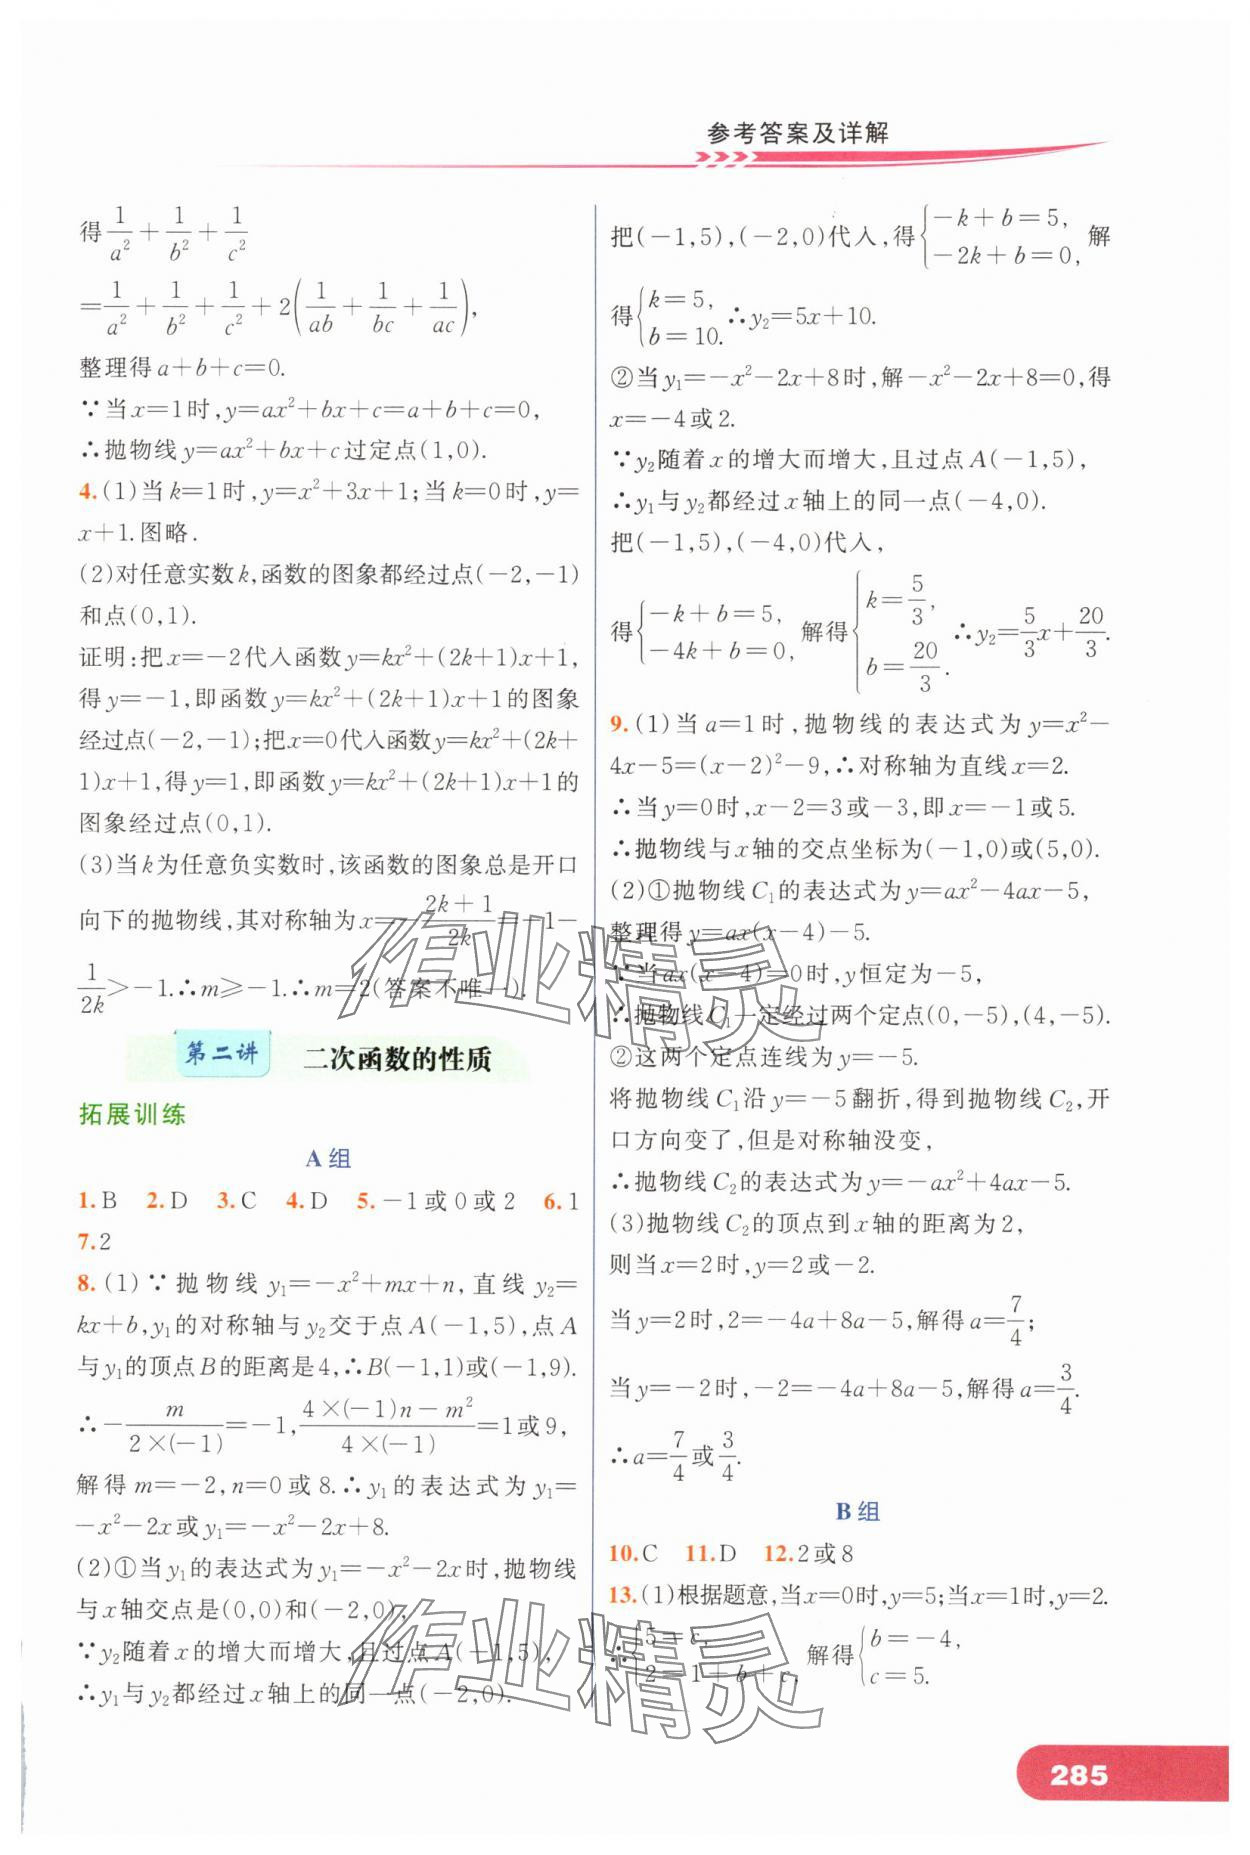 参考答案及详解
得1/a²+1/b²+1/c²
=1/a²+1/b²+1/c²+2(1/ab+1/bc+1/ac),
整理得a+b+c=0.
∵当x=1时,y=ax²+bx+c=a+b+c=0,
∴抛物线y=ax²+bx+c过定点(1,0).
4.(1)当k=1时,y=x²+3x+1;当k=0时,y=
x+1.图略.
(2)对任意实数k,函数的图象都经过点(-2,-1)
和点(0,1).
证明:把x=-2代入函数y=kx²+(2k+1)x+1,
得y=-1,即函数y=kx²+(2k+1)x+1的图象
经过点(-2,-1);把x=0代入函数y=kx²+(2k+
1)x+1,得y=1,即函数y=kx²+(2k+1)x+1的
图象经过点(0,1).
(3)当k为任意负实数时,该函数的图象总是开口
向下的抛物线,其对称轴为x=-(2k+1)/2k=-1-
1/2k>-1.∴m≥-1.∴m=2(答案不唯一).
第二讲 二次函数的性质
拓展训练
A组
1.B 2.D 3.C 4.D 5.-1或0或2 6.1
7.2
8.(1)∵抛物线y₁=-x²+mx+n,直线y₂=
kx+b,y₁的对称轴与y₂交于点A(-1,5),点A
与y₁的顶点B的距离是4,∴B(-1,1)或(-1,9).
∴-m/(2×(-1))=-1,(4×(-1)n-m²)/(4×(-1))=1或9,
解得m=-2,n=0或8.∴y₁的表达式为y₁=
-x²-2x或y₁=-x²-2x+8.
(2)①当y₁的表达式为y₁=-x²-2x时,抛物线
与x轴交点是(0,0)和(-2,0),
∵y₂随着x的增大而增大,且过点A(-1,5),
∴y₁与y₂都经过x轴上的同一点(-2,0).
把(-1,5),(-2,0)代入,得{-k+b=5, -2k+b=0, 解
得{k=5, b=10. ∴y₂=5x+10.
②当y₁=-x²-2x+8时,解-x²-2x+8=0,得
x=-4或2.
∵y₂随着x的增大而增大,且过点A(-1,5),
∴y₁与y₂都经过x轴上的同一点(-4,0).
把(-1,5),(-4,0)代入,
得{-k+b=5, -4k+b=0, 解得{k=5/3, b=20/3. ∴y₂=5/3x+20/3.
9.(1)当a=1时,抛物线的表达式为y=x²-
4x-5=(x-2)²-9,∴对称轴为直线x=2.
∴当y=0时,x-2=3或-3,即x=-1或5.
∴抛物线与x轴的交点坐标为(-1,0)或(5,0).
(2)①抛物线C₁的表达式为y=ax²-4ax-5,
整理得y=ax(x-4)-5.
∵当ax(x-4)=0时,y恒定为-5,
∴抛物线C₁一定经过两个定点(0,-5),(4,-5).
②这两个定点连线为y=-5.
将抛物线C₁沿y=-5翻折,得到抛物线C₂,开
口方向变了,但是对称轴没变,
∴抛物线C₂的表达式为y=-ax²+4ax-5.
(3)抛物线C₂的顶点到x轴的距离为2,
则当x=2时,y=2或-2.
当y=2时,2=-4a+8a-5,解得a=7/4;
当y=-2时,-2=-4a+8a-5,解得a=3/4.
∴a=7/4或3/4.
B组
10.C 11.D 12.2或8
13.(1)根据题意,当x=0时,y=5;当x=1时,y=2.
∴{5=c, 2=1+b+c, 解得{b=-4, c=5.
作业精灵
作业精灵
285